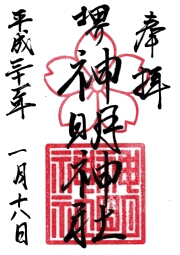 奉拝
堺
神明神社
平成三十年 一月十八日